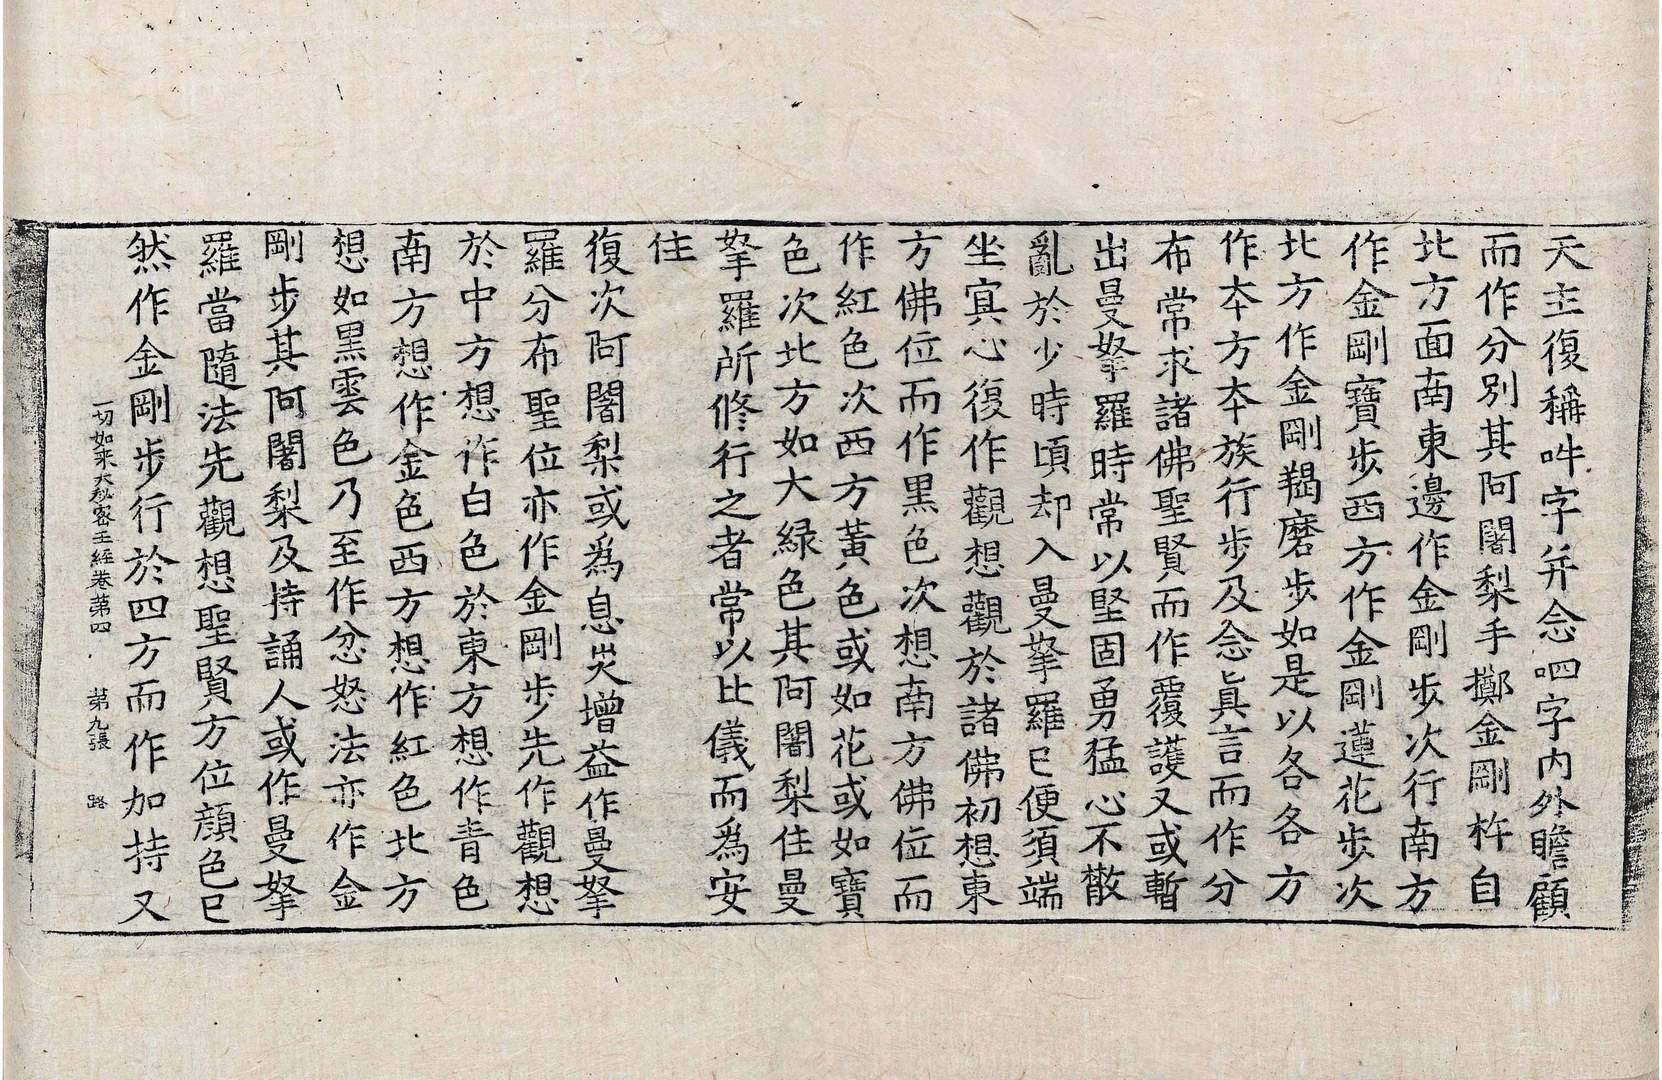 天主復稱吽字并念呬字内外瞻顧
而作分別其阿闍梨手擲金剛杵自
北方面南東邊作金剛步次行南方
作金剛寶步西方作金剛蓮花步次
北方作金剛羯磨步如是以各各方
作夲方夲族行步及念真言而作分
布常求諸佛聖賢而作覆護又或暫
出曼拏羅時常以堅固勇猛心不散
亂於少時頃却入曼拏羅已便須端
坐寘心復作觀想觀於諸佛初想東
方佛位而作黑色次想南方佛位而
作紅色次西方黃色或如花或如寶
色次北方如大緑色其阿闍梨住曼
拏羅所修行之者常以比儀而爲安
住
復次阿闍梨或爲息災增益作曼拏
羅分布聖位亦作金剛步先作觀想
於中方想作白色於東方想作青色
南方想作金色西方想作紅色北方
想如黑雲色乃至作忿怒法亦作金
剛步其阿闍梨及持誦人或作曼拏
羅當隨法先觀想聖賢方位顔色已
然作金剛步行於四方而作加持又
一切如来大秘密王經卷第四 第九張 路